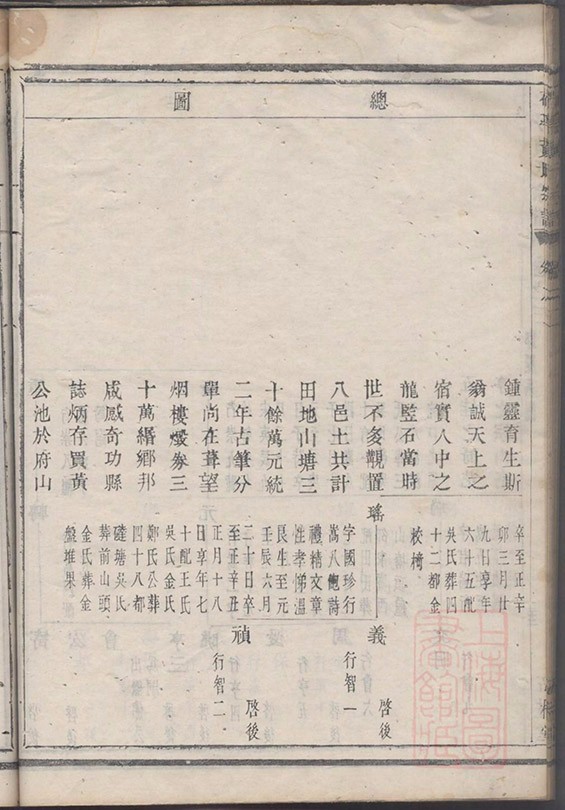 總圖
鍾靈育生斯
翁誠天上之
宿實人中之
龍監石當時
世不多觀置
八邑土共計
田地山塘三
十餘萬元統
二年古筆分
單尚在聳望
烟樓燬劵三
十萬緡鄉邦
咸感奇功縣
誌炳存買黃
公池於府山
卒至正辛
卯三月廿
九日享年
六十五配
吳氏葬四
十二都金
校椅
瑤
字國珍行
嵩八飽詩
禮精文章
性孝悌溫
艮生至元
壬辰六月
二十日卒
至正辛丑
正月十八
日享年七
十配王氏
吳氏金氏
鄭氏公葬
四十八都
礎塘吳氏
葬前山頭
金氏葬金
盤堆果
義
行智一
啓後
禎
行智二
啓後